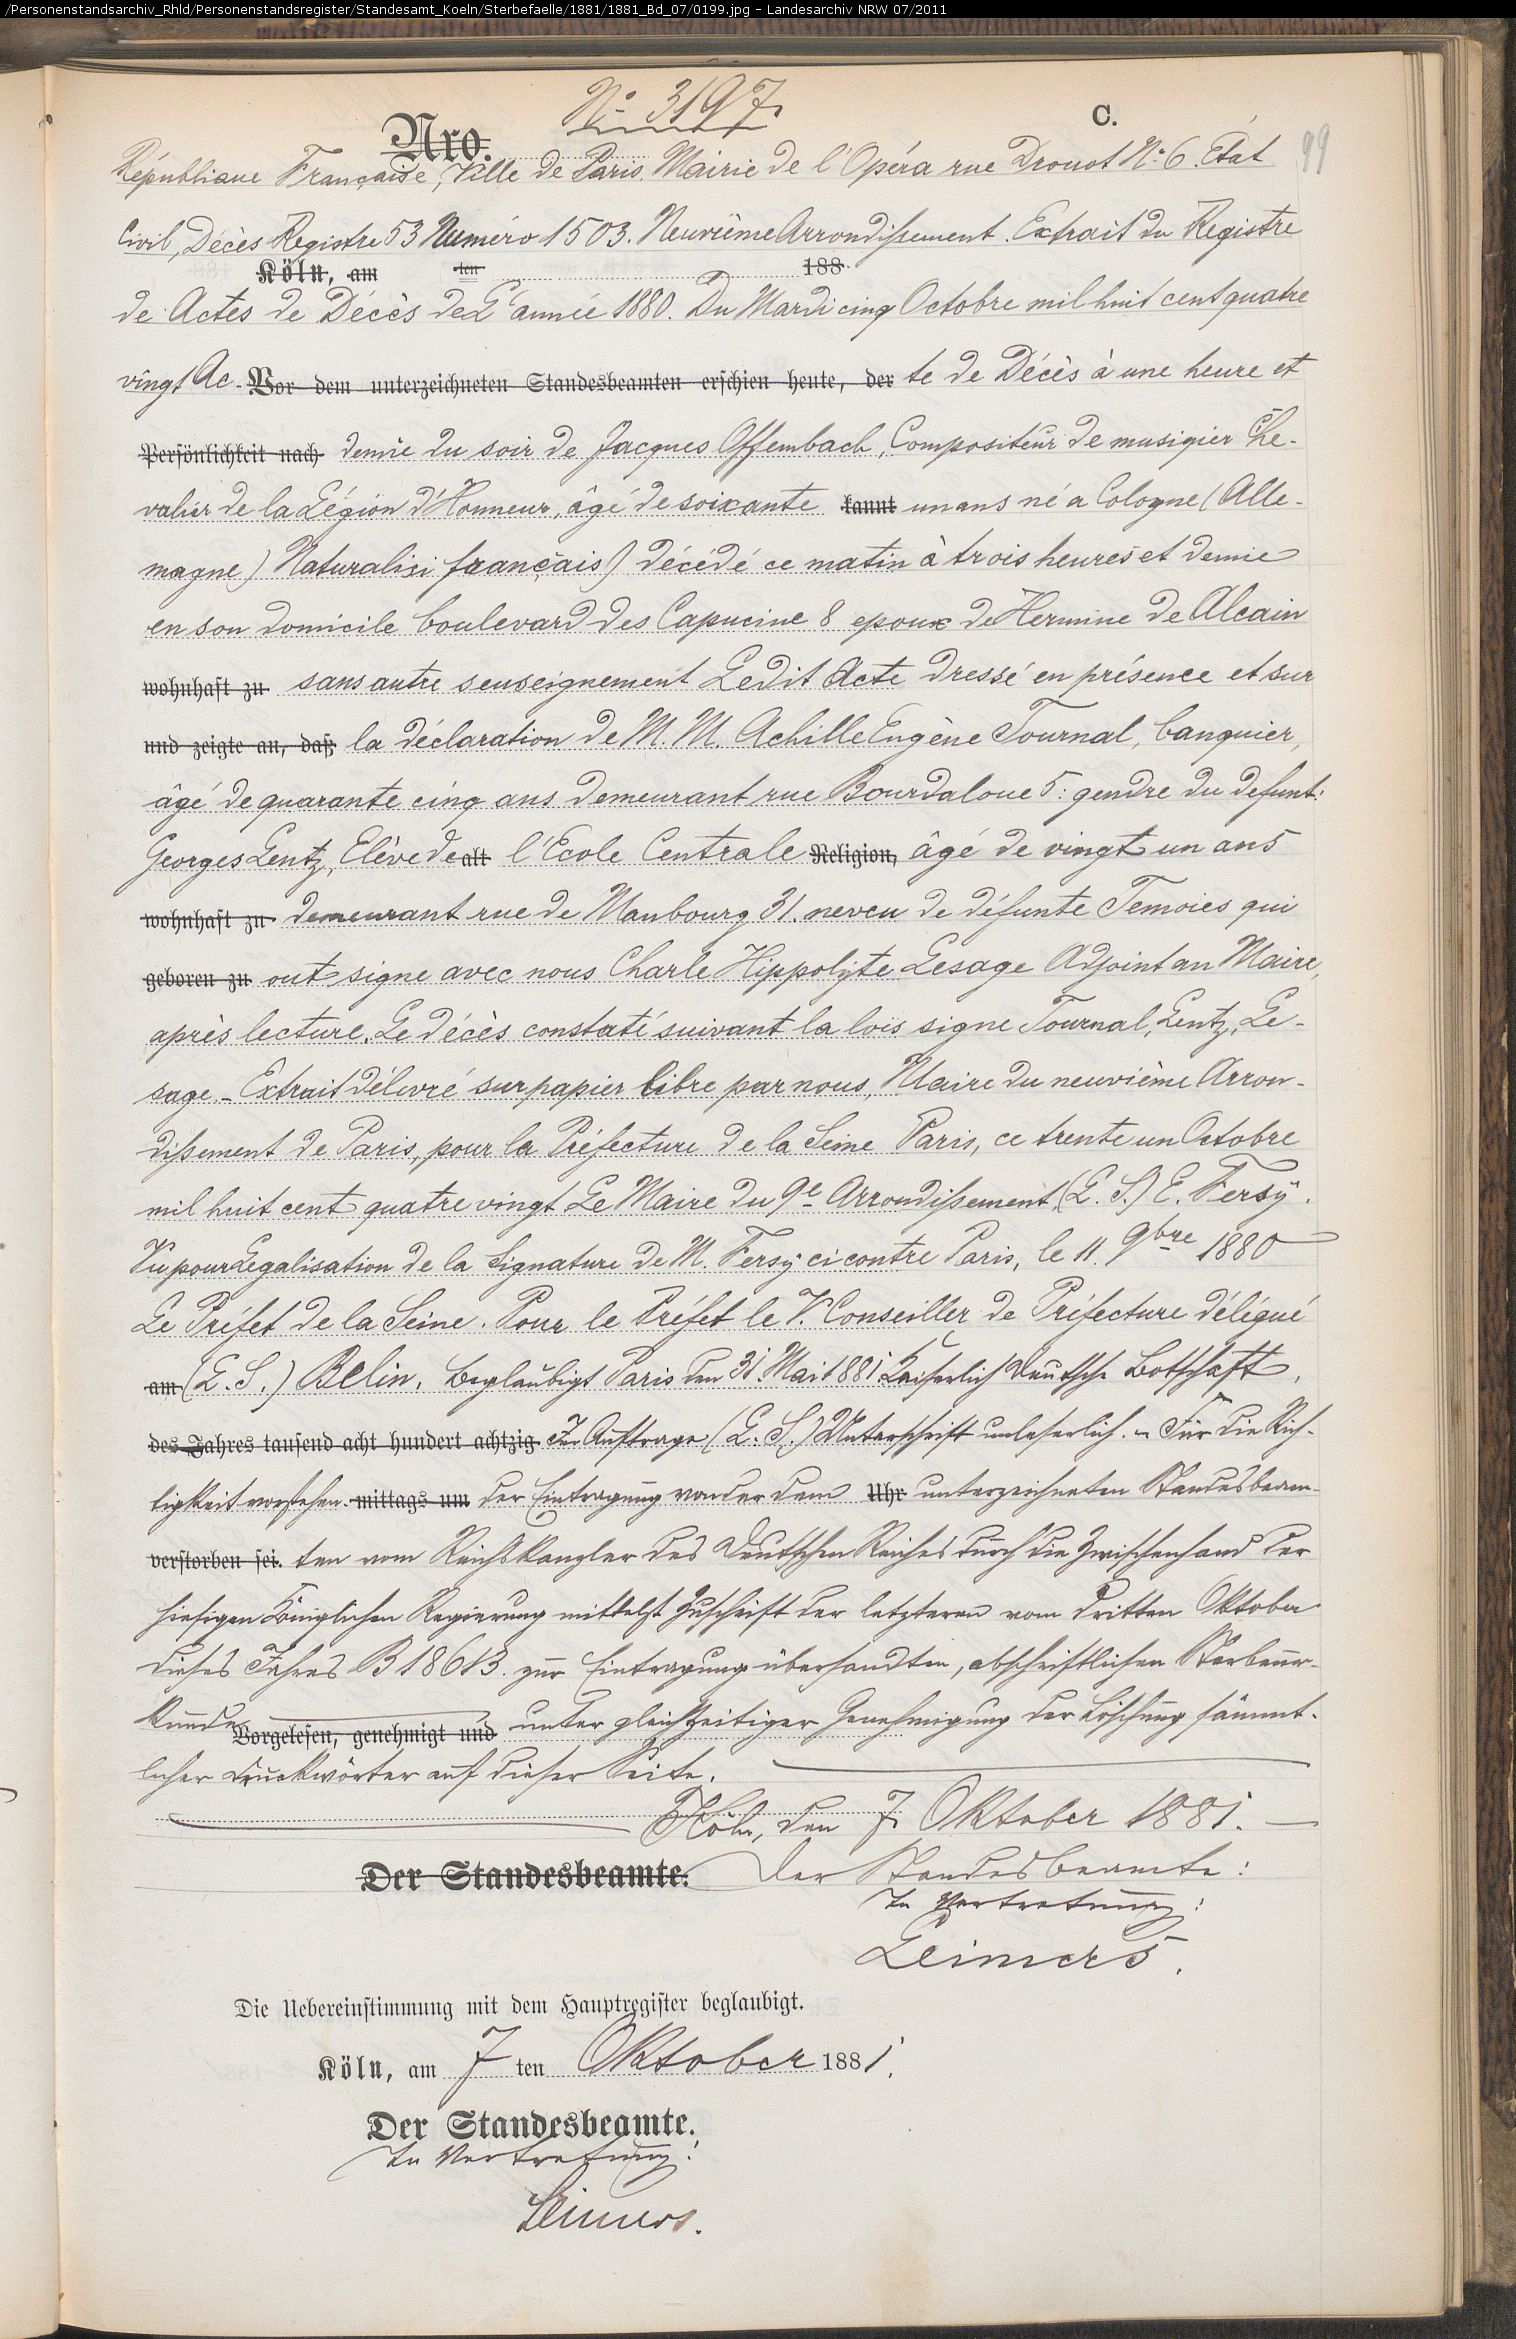 /Personenstandsarchiv_Rhld/Personenstandsregister/Standesamt_Koeln/Sterbefaelle/1881/1881_Bd_07/0199.jpg - Landesarchiv NRW 07/2011
No 3197.
Nro. C.
République Française, Ville de Paris. Mairie de l'Opéra rue Drouot No 6. Etat 99
Civil, Décès Registre 53 Numéro 1503. Neuvième Arrondissement. Extrait du Registre
Köln, am ten 188
de Actes de Décès de L'année 1880. Du Mardi cinq Octobre mil huit cent quatre
vingt Ac- Vor dem unterzeichneten Standesbeamten erschien heute, der te de Décès à une heure et
Persönlichkeit nach demie du soir de Jacques Offembach, Compositeur de musiqier Che-
valier de la Légion d'Honneur, âgé de soixante kannt un ans né a Cologne (Alle-
magne) Naturalisi français) décédé ce matin à trois heures et demie
en son domicile boulevard des Capucine 8 epoux de Hermine de Alcain
wohnhaft zu sans autre senseignement Ledit Acte dressé en présence et sur
und zeigte an, daß la déclaration de M. M. Achille Eugène Tournal, banquier,
âgé de quarante cinq ans demeurant rue Bourdaloue 5. gendre du defunt.
Georges Lentz, Elève de alt l'Ecole Centrale Religion, âgé de vingt un ans
wohnhaft zu demeurant rue de Maubourg 31. neveu de défunte Temoies qui
geboren zu out signe avec nous Charle Hippolyte Lesage Adjoint au Maire,
après lecture. Le décès constaté suivant la lois signe Tournal, Lentz, Le-
sage.- Extrait délivré sur papier libre par nous, Maire du neuvième Arron-
dissement de Paris, pour la Préfecture de la Seine Paris, ce trente un Octobre
mil huit cent quatre vingt Le Maire du 9e Arrondissement, (L. S.) E. Fersy.
Vu pour Legalisation de la Signature de M. Fersy ci contre Paris, le 11. 9bre 1880
Le Préfet de la Seine. Pour le Préfet le V. Conseiller de Préfecture délégué
am (L. S.) Belin. Beglaubigt Paris den 31. Mai 1881 Kaiserlich Deutsche Botschaft,
des Jahres tausend acht hundert achtzig Im Auftrage (L. S.) Unterschrift unleserlich. - Für die Rich-
tigkeit vorstehen- mittags um der Eintragung von der dem Uhr unterzeichneten Standesbeam-
verstorben sei. ten vom Reichskanzler des Deutschen Reiches durch die Zwischenhand der
hiesigen Königlichen Regierung mittelst Zuschrift der letzteren vom dritten Oktober
dieses Jahres B 18613. zur Eintragung übersandten, abschriftlichen Sterbeur-
kunde Vorgelesen, genehmigt und unter gleichzeitiger Genehmigung der Löschung sämmt-
licher Druckwörter auf dieser Seite.
Köln, den 7. Oktober 1881.
Der Standesbeamte. Der Standesbeamte:
In Vertretung:
Leimers.
Die Uebereinstimmung mit dem Hauptregister beglaubigt.
Köln, am 7 ten Oktober 1881.
Der Standesbeamte.
In Vertretung:
Leimers.